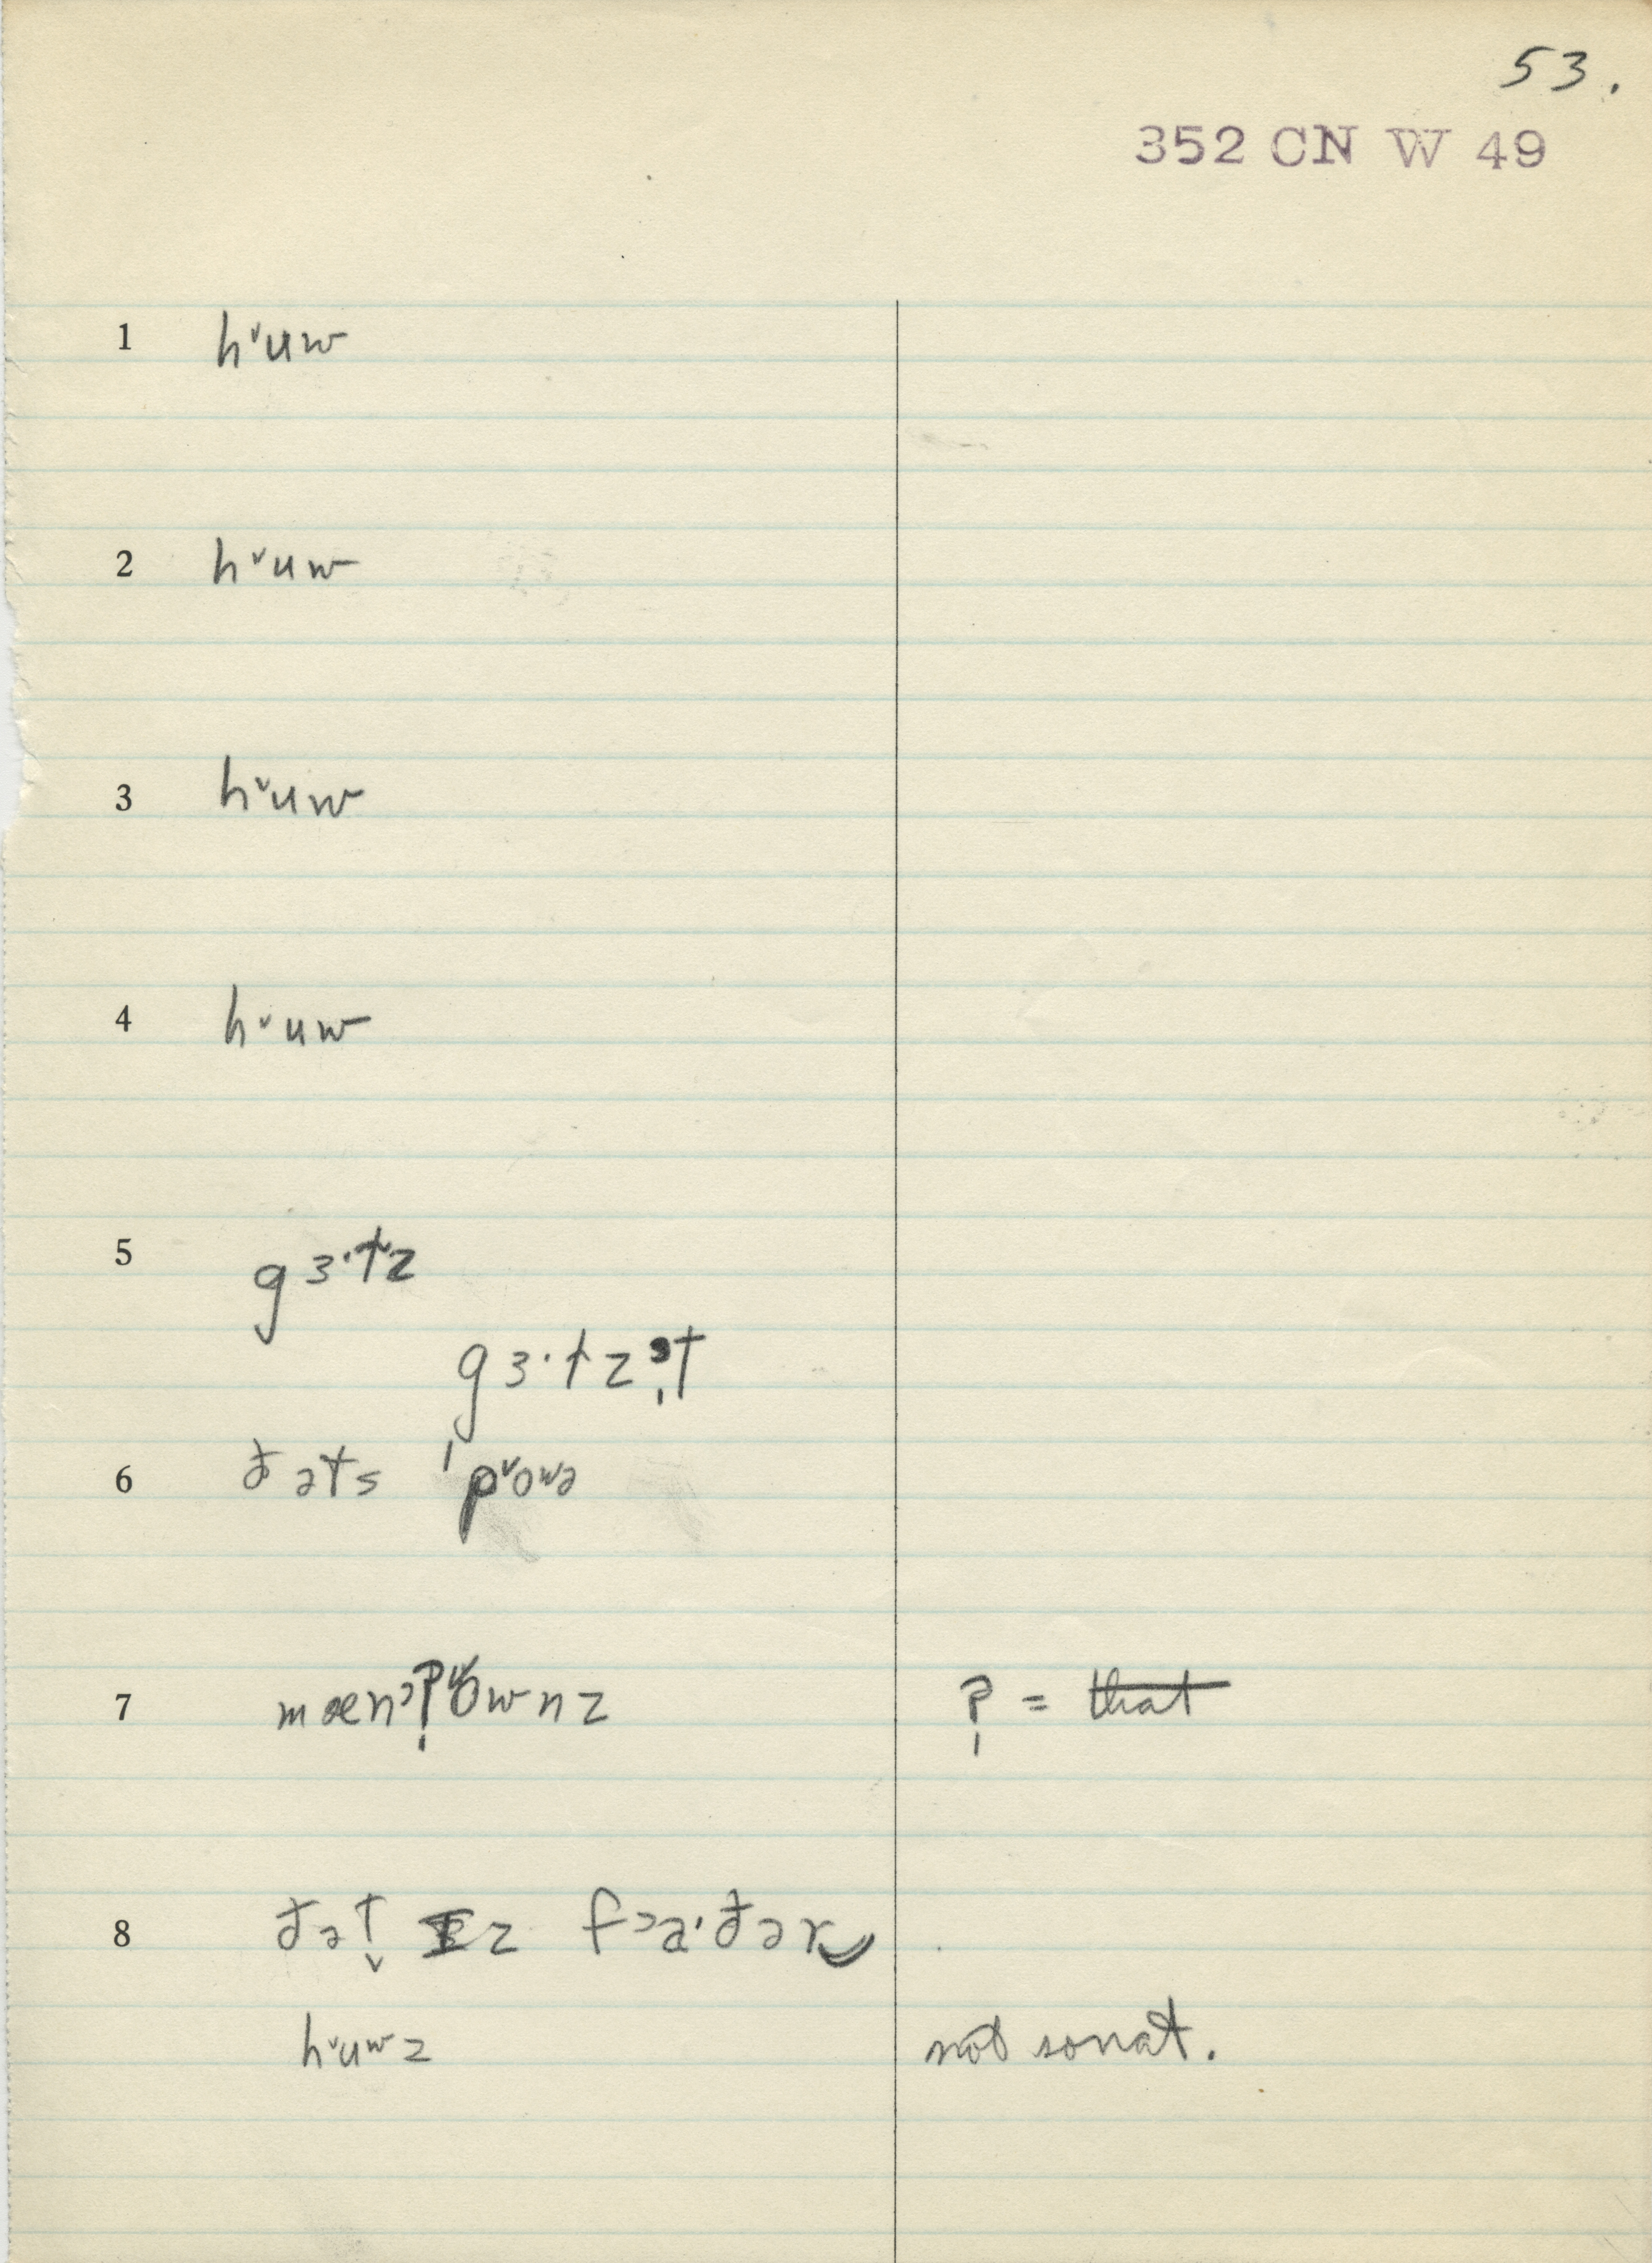 53.
352 CN W 49
1 hᵛuw
2 hᵛuw
3 hᵛuw
4 hᵛuw
5 gɜ·tz
gɜ·tzɜt
6 đəts ˈpᵛoʷə
7 ʔ = ~~that~~
8 đət ɪz fɔa·đər
hᵛuʷz not sonat.